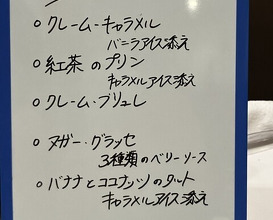 ○ クレーム・キャラメル
バニラアイス添え
○ 紅茶のプリン
キャラメルアイス添え
○ クレーム・ブリュレ
○ ヌガー・グラッセ
3種類のベリーソース
○ バナナとココナッツのタルト
キャラメルアイス添え